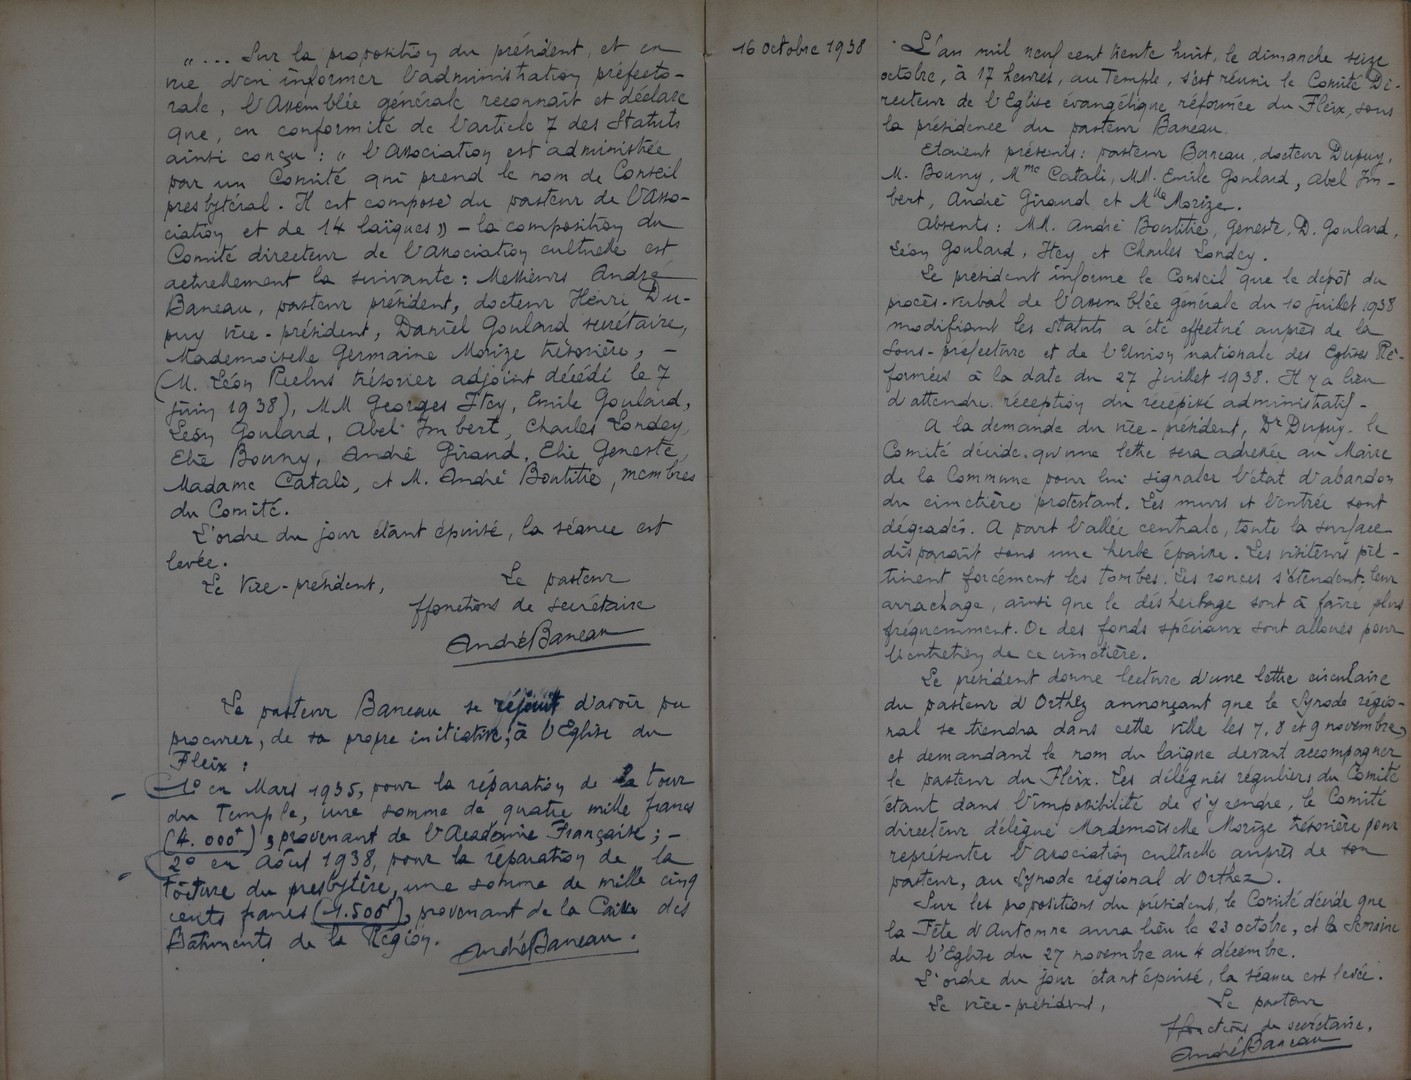 „ ... Sur la proposition du président, et en
vue d'en informer l'administration préfecto-
rale, l'Assemblée générale reconnaît et déclare
que, en conformité de l'article 7 des Statuts
ainsi conçu : „ l'Association est administrée
par un Comité qui prend le nom de Conseil
presbytéral. Il est composé du pasteur de l'Asso-
ciation et de 14 laïques „ – la composition du
Comité directeur de l'Association cultuelle est
actuellement la suivante : Messieurs André
Baneau, pasteur président, docteur Henri Du-
puy vice-président, Daniel Goulard secrétaire,
Mademoiselle Germaine Morize trésorière, –
(M. Léon Reclus trésorier adjoint décédé le 7
juin 1938), MM Georges Itey, Emile Goulard,
Léon Goulard, Abel Imbert, Charles Londey,
Elie Bouny, André Giraud, Elie Geneste,
Madame Catali, et M. André Boutitie, membres
du Comité.
L'ordre du jour étant épuisé, la séance est
levée.
Le Vice-président, Le pasteur
ffonctions de secrétaire
André Baneau
Le pasteur Baneau se réjouit d'avoir pu
procurer, de sa propre initiative, à l'Eglise du
Fleix :
1° en Mars 1935, pour la réparation de la tour
du Temple, une somme de quatre mille francs
(4.000f), provenant de l'Académie Française ; –
2° en Août 1938, pour la réparation de la
toiture du presbytère, une somme de mille cinq
cents francs (1.500f), provenant de la Caisse des
Bâtiments de la Région.
André Baneau.
16 octobre 1938
L'an mil neuf cent trente huit, le dimanche seize
octobre, à 17 heures, au Temple, s'est réuni le Comité Di-
recteur de l'Eglise évangélique réformée du Fleix, sous
la présidence du pasteur Baneau.
Etaient présents : pasteur Baneau, docteur Dupuy,
M. Bouny, Mme Catali, MM. Emile Goulard, Abel Im-
bert, André Giraud et Mlle Morize.
Absents : MM. André Boutitie, Geneste, D. Goulard,
Léon Goulard, Itey, et Charles Londey.
Le président informe le Conseil que le dépôt du
procès-verbal de l'assemblée générale du 10 juillet 1938
modifiant les statuts a été effectué auprès de la
Sous-préfecture et de l'Union nationale des Eglises Ré-
formées à la date du 27 Juillet 1938. Il y a lieu
d'attendre réception du récépissé administratif.
A la demande du vice-président, Dr Dupuy, le
Comité décide qu'une lettre sera adressée au Maire
de la Commune pour lui signaler l'état d'abandon
du cimetière protestant. Les murs et l'entrée sont
dégradés. A part l'allée centrale, toute la surface
disparaît sous une herbe épaisse. Les visiteurs pié-
tinent forcément les tombes. Les ronces s'étendent ; leur
arrachage, ainsi que le désherbage sont à faire plus
fréquemment. Or des fonds spéciaux sont alloués pour
l'entretien de ce cimetière.
Le président donne lecture d'une lettre circulaire
du pasteur d'Orthez annonçant que le Synode régio-
nal se tiendra dans cette ville les 7, 8 et 9 novembre,
et demandant le nom du laïque devant accompagner
le pasteur du Fleix. Les délégués réguliers du Comité
étant dans l'impossibilité de s'y rendre, le Comité
directeur délègue Mademoiselle Morize trésorière pour
représenter l'Association cultuelle auprès de son
pasteur, au Synode régional d'Orthez.
Sur les propositions du président, le Comité décide que
la Fête d'Automne aura lieu le 23 octobre, et la Semaine
de l'Eglise du 27 novembre au 4 décembre.
L'ordre du jour étant épuisé, la séance est levée.
Le vice-président, Le pasteur
ffonctions de secrétaire.
André Baneau